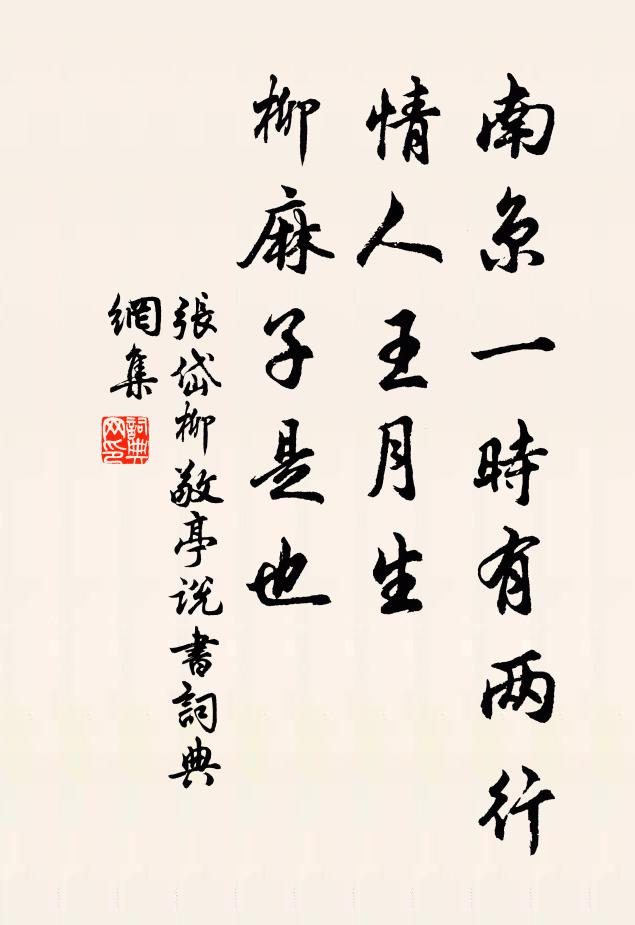 南京一時有两行
情人王月生
柳麻子是也
張岱柳敬亭说書詞典
網集
詞典
网印